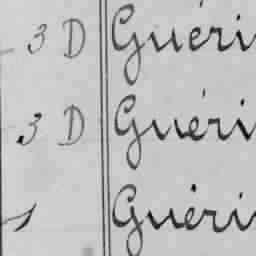 3 D Guéri
3 D Guéri
1 Guéri